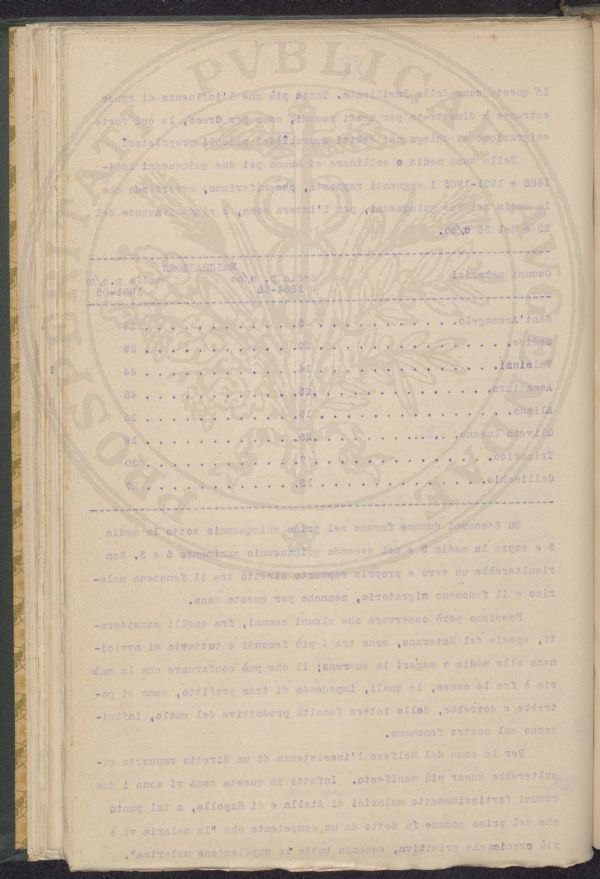 in questa zona della Basilicata. Tanto più che l'influenza di cause
estranee è dimostrata per certi comuni, come per Craco, la cui forte
emigrazione si spiega coi debiti usurai dei piccoli proprietari.
Nella zona media o collinare si hanno pei due quinquenni 1884-
1888 e 1901-1905 i seguenti rapporti, che riferiamo, avvertendo che
la media nei due quinquenni, per l'intera zona, è rispettivamente del
23 e del 35 o/oo.
EMIGRAZIONE
Comuni malarici media p. o/oo media p.o/o
1884-88 1901-05
Sant'Arcangelo. 24
Sadica. 20. 29
Valsinni. 14. 44
Accettura. 45
Aliano. 19.
Oliveto Lucano. 19
Tricarico. 7. 30
Gallicchio. 12.
Su 8:comuni dunque furono nel primo quinquennio sotto la media
5 e sopra la media 3 e nel secondo quinquennio parimente 5 e 3. Non
risulterebbe un vero e proprio rapporto diretto tra il fenomeno mala-
rico e il fenomeno migratorio, neanche per questa zona.
Possiamo però osservare che alcuni comuni, fra quelli considera-
ti, specie del Materano, sono tra i più fecondi e tuttavia si avvici-
nano alla media o magari la sorpano; il che può confermare che la mala
ria è fra le cause, le quali, impedendo di trar profitto, come si po-
trebbe e dovrebbe, delle intere facoltà produttive del suolo, influi-
scono sul nostro fenomeno.
Per la zona del Melfese l'inesistenza di un diretto rapporto ri-
sulterebbe ancor più manifesta. Infatti in questa zona vi sono i due
comuni fortissimamente malarici di Atella e di Rapolla, a tal punto
che del primo comune fu detto da un competente che "la malaria vi è
più cronica che primitiva, essendo tutta la popolazione malarica".